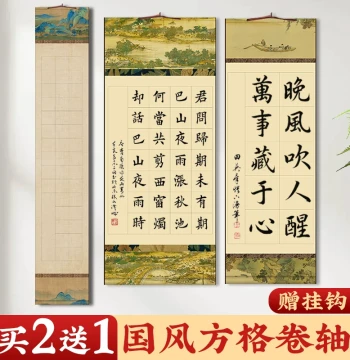 晚風吹人醒
萬事藏于心
君問歸期未有期
巴山夜雨漲秋池
何當共剪西窗燭
却話巴山夜雨時
赠挂钩
买2送1国风方格卷轴